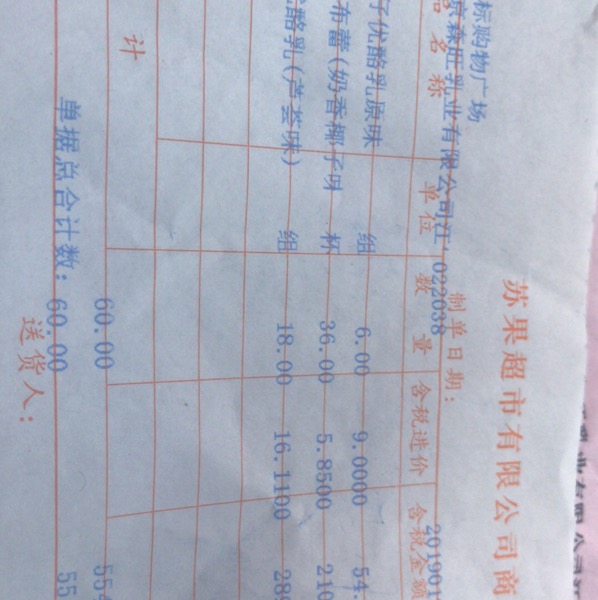 苏果超市有限公司商
制单日期: 201901
标购物广场
京森旺乳业有限公司江 022038
品名称 单位 数量 含税进价 含税金额
子优酪乳原味 组 6.00 9.0000 54.
布蕾(奶香椰子味 杯 36.00 5.8500 210
优酪乳(芦荟味) 组 18.00 16.1100 289
计 60.00 554
单据总合计数: 60.00 55
送货人: